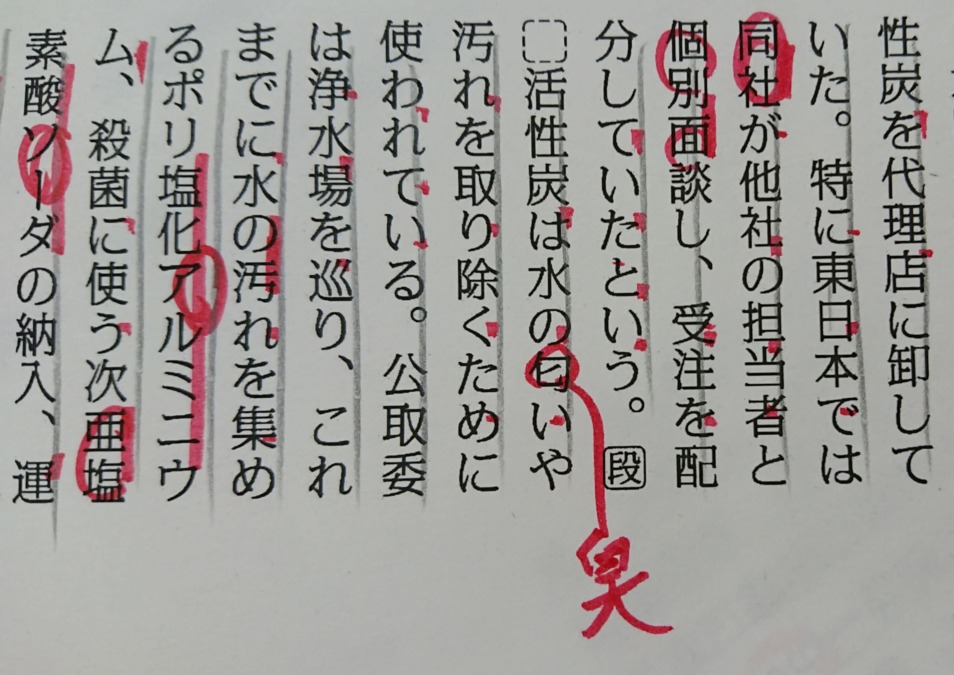 性炭を代理店に卸して
いた。特に東日本では
同社が他社の担当者と
個別面談し、受注を配
分していたという。段
活性炭は水の匂いや
汚れを取り除くために
使われている。公取委
は浄水場を巡り、これ
までに水の汚れを集め
るポリ塩化アルミニウ
ム、殺菌に使う次亜塩
素酸ソーダの納入、運
臭